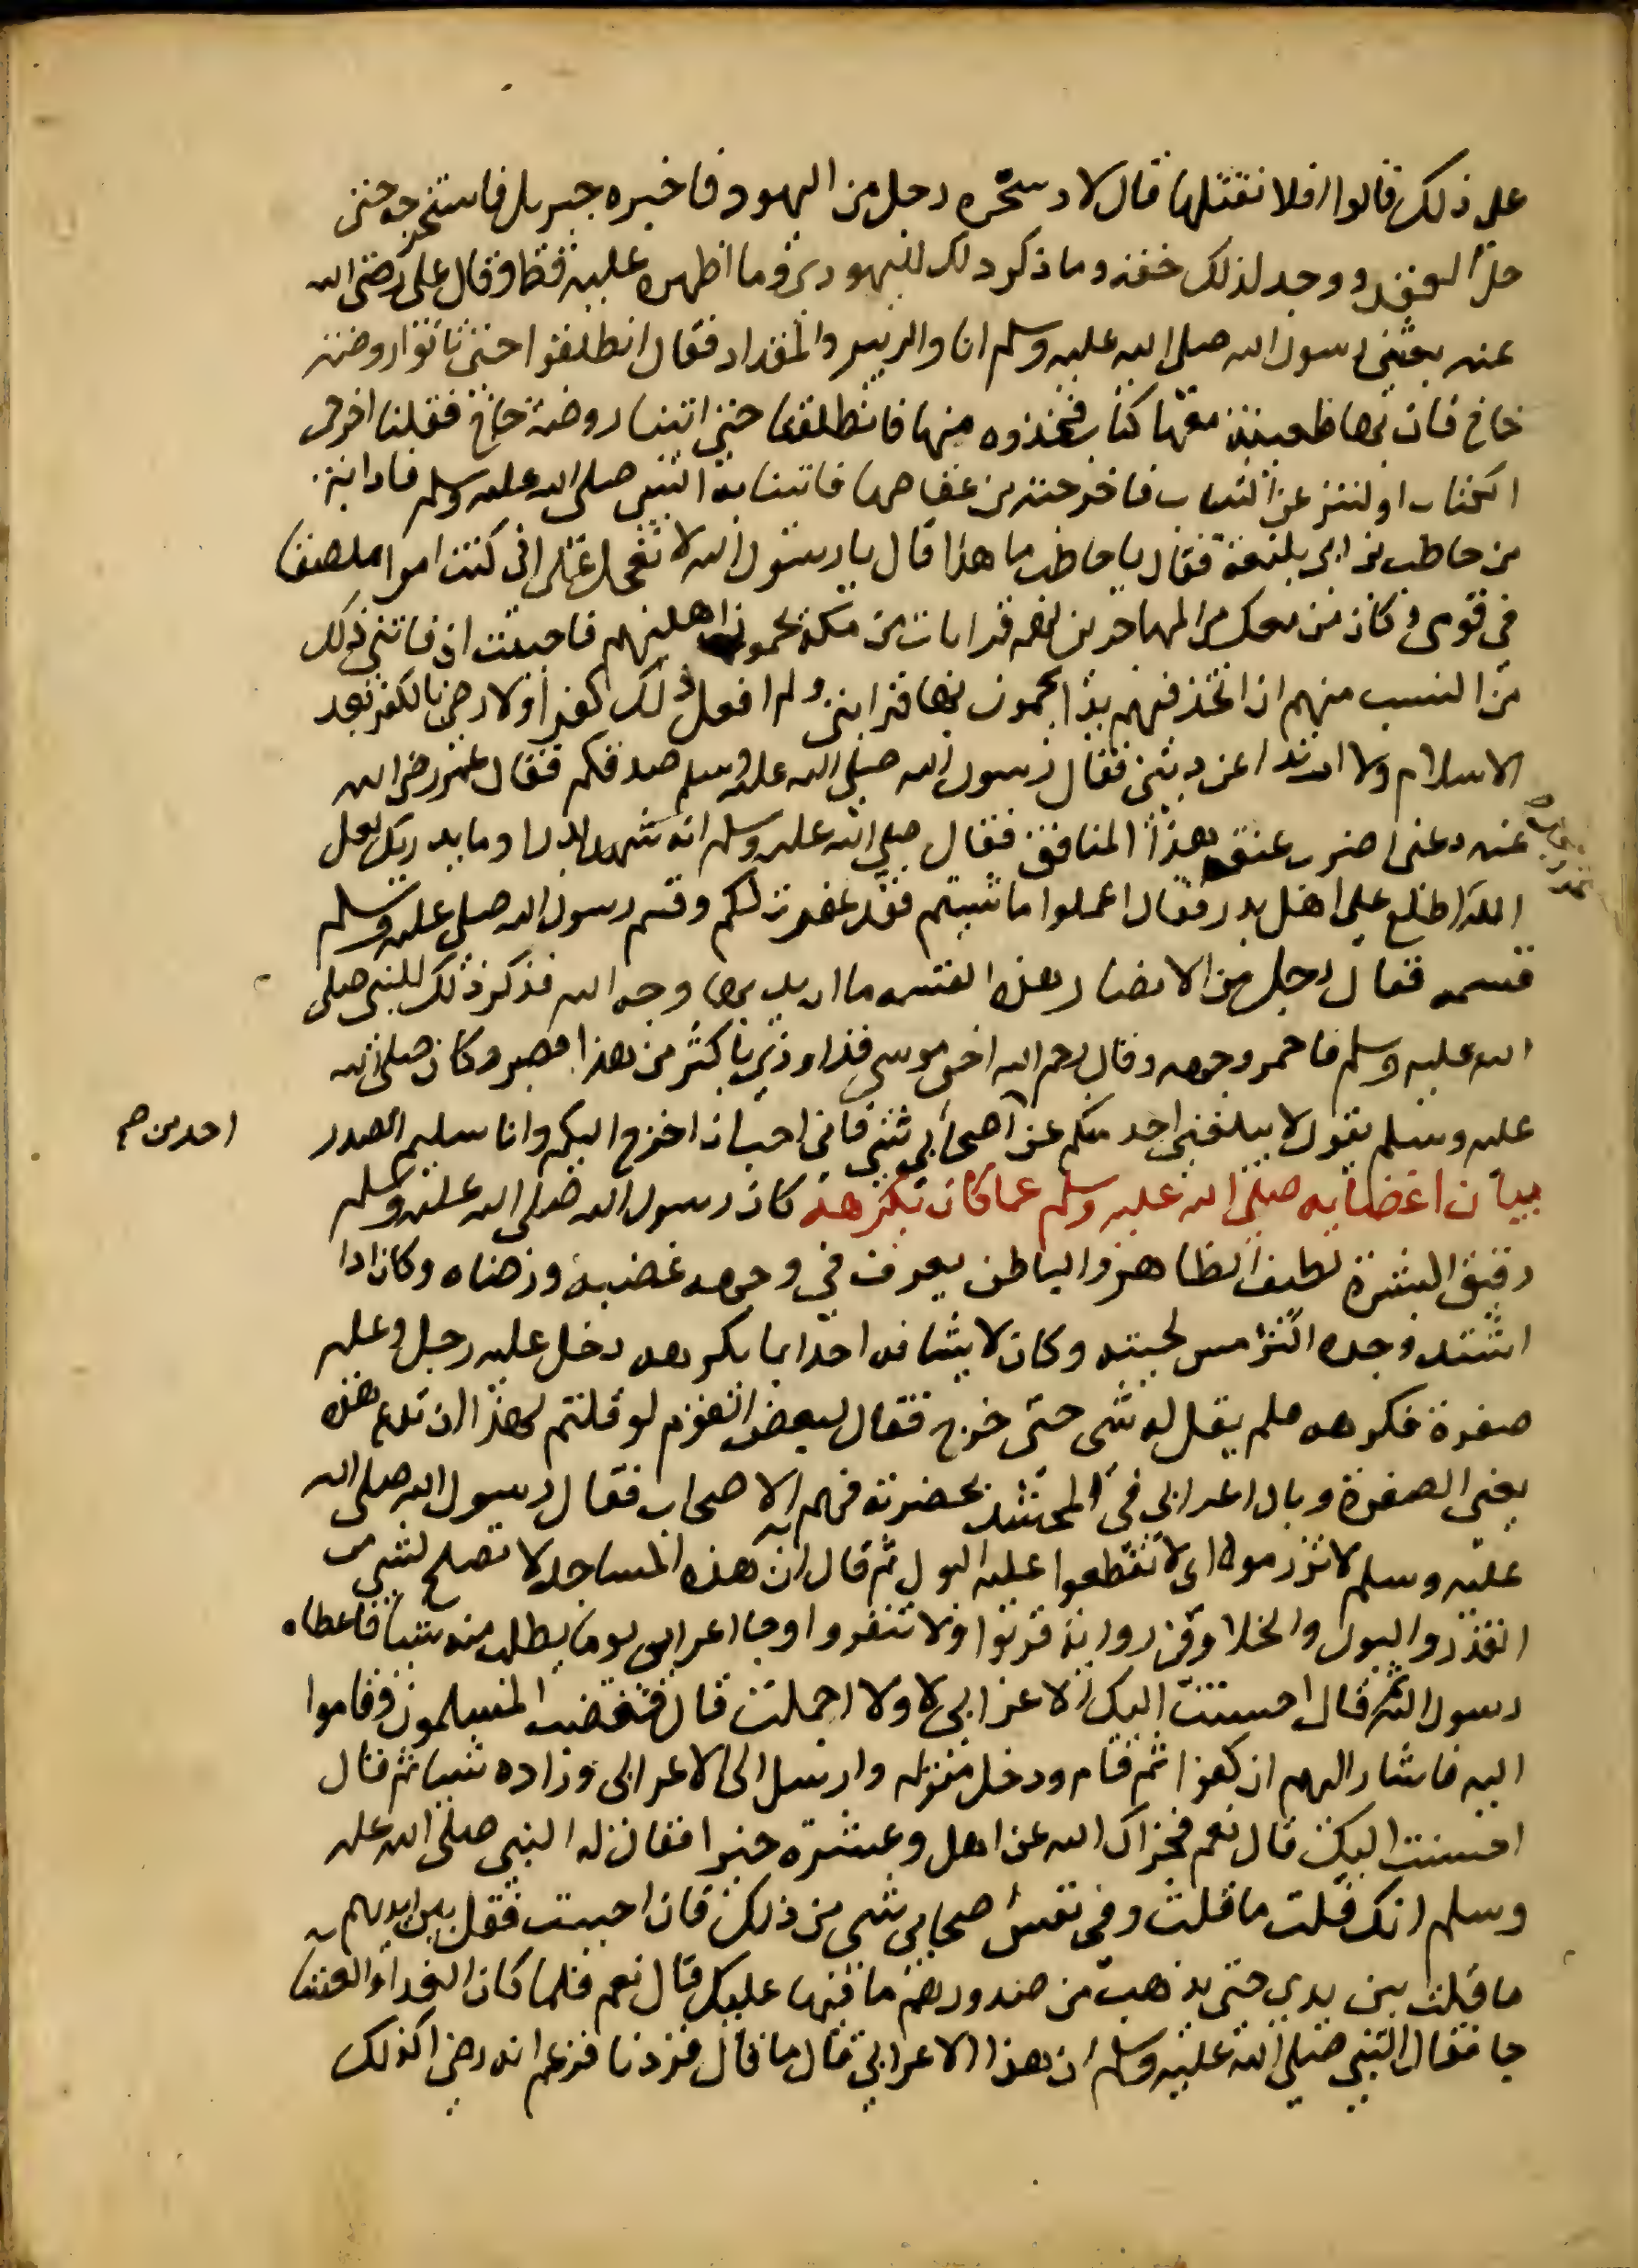 على ذلك قالوا افلا نقتلها قال لا وسحره رجل من اليهود فاخبره جبريل فاستخرجه حتى
حل العقد ووجد لذلك خفة وما ذكر ذلك لليهودي وما اظهره عليه قط وقال على رضى الله
عنه بعثنى رسول الله صلى الله عليه وسلم انا والزبير والمقداد فقال انطلقوا حتى تاتوا روضة
خاخ فان بها ظعينة معها كتاب فخذوه منها فانطلقنا حتى اتينا روضة خاخ فقلنا اخرجى
الكتاب او لننزعن الثياب فاخرجته من عقاصها فاتينا به النبى صلى الله عليه وسلم فاذا فيه
من حاطب بن ابى بلتعة فقال يا حاطب ما هذا قال يا رسول الله لا تعجل على انى كنت امرا ملصقا
فى قومى وكان من معك من المهاجرين لهم قرابات من مكة يحمون اهليهم فاحببت اذ فاتنى ذلك
من النسب منهم ان اتخذ فيهم يدا يحمون بها قرابتى ولم افعل ذلك كفرا ولا رضى بالكفر بعد
الاسلام ولا ارتدادا عن دينى فقال رسول الله صلى الله عليه وسلم صدقكم فقال عمر رضى الله
عنه دعنى اضرب عنق هذا المنافق فقال صلى الله عليه وسلم انه شهد بدرا وما يدريك لعل
الله اطلع على اهل بدر فقال اعملوا ما شيتم فقد غفرت لكم وقسم رسول الله صلى عليه وسلم
قسمه فقال رجل من الانصار هذه القسمه ما اريد بها وجه الله فذكر ذلك للنبى صلى
الله عليه وسلم فاحمر وجهه وقال رحم الله اخى موسى قد اوذى باكثر من هذا فصبر وكان صلى الله
عليه وسلم يقول لا يبلغنى احد منكم عن اصحابى شى فانى احب ان اخرج اليكم وانا سليم الصدر
احد من صح
بيان اغضايه صلى الله عليه وسلم عما كان يكرهه كان رسول الله صلى الله عليه وسلم
رقيق البشرة لطيف الظاهر والباطن يعرف فى وجهه غضبه ورضاه وكان اذا
اشتد وجده اكثر مس لحيته وكان لا يشافه احدا بما يكرهه دخل عليه رجل وعليه
صفرة فكرهه فلم يقل له شى حتى خرج فقال لبعض القوم لو قلتم لهذا ان يدع هذه
يعنى الصفرة وبال اعرابى فى المسجد بحضرته فهم به الاصحاب فقال رسول الله صلى الله
عليه وسلم لا تزرموه اى لا تقطعوا عليه البول ثم قال ان هذه المساجد لا تصلح لشى من
القذر والبول والخلا وفى رواية قربوا ولا تنفروا وجا اعرابى يوما يطلب منه شيا فاعطاه
رسول الله ثم قال احسنت اليك قال الاعرابى لا ولا اجملت قال فغضب المسلمون وقاموا
اليه فاشار اليهم ان كفوا ثم قام ودخل منزله وارسل الى الاعرابى وزاده شيا ثم قال
احسنت اليك قال نعم فجزاك الله من اهل وعشيرة خيرا فقال له النبى صلى الله عليه
وسلم انك قلت ما قلت وفى نفس اصحابى شى من ذلك فان احببت فقل بين ايديهم
ما قلت بين يدى حتى يذهب من صدورهم ما فيها عليك قال نعم فلما كان الغد او العشا
جا فقال النبى صلى الله عليه وسلم ان هذا الاعرابى قال ما قال فزدنا فزعم انه رضى اكذلك